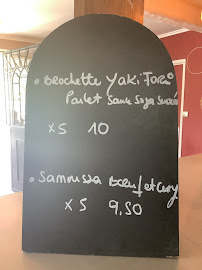 • Brochette Yaki Tori
Poulet Sauce Soja Sucrée
x5 10
• Samoussa Bœuf et Curry
x5 9,50